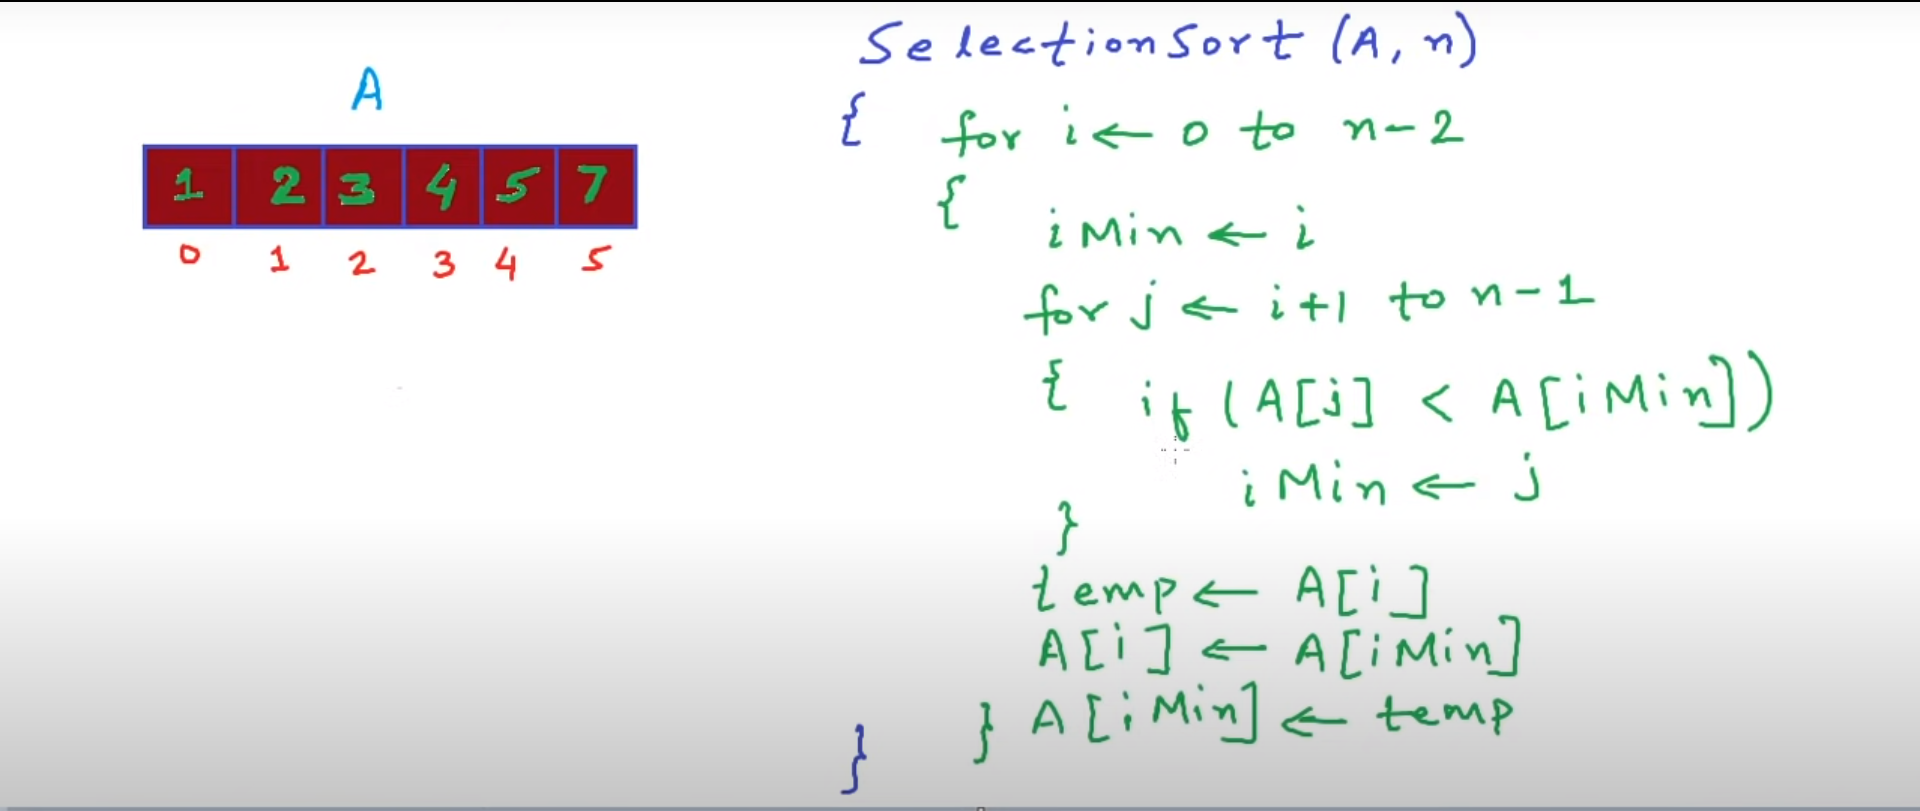 A
1 2 3 4 5 7
0 1 2 3 4 5
SelectionSort (A, n)
{ for i ← 0 to n-2
{
iMin ← i
for j ← i+1 to n-1
{ if (A[j] < A[iMin])
iMin ← j
}
temp ← A[i]
A[i] ← A[iMin]
} A[iMin] ← temp
}